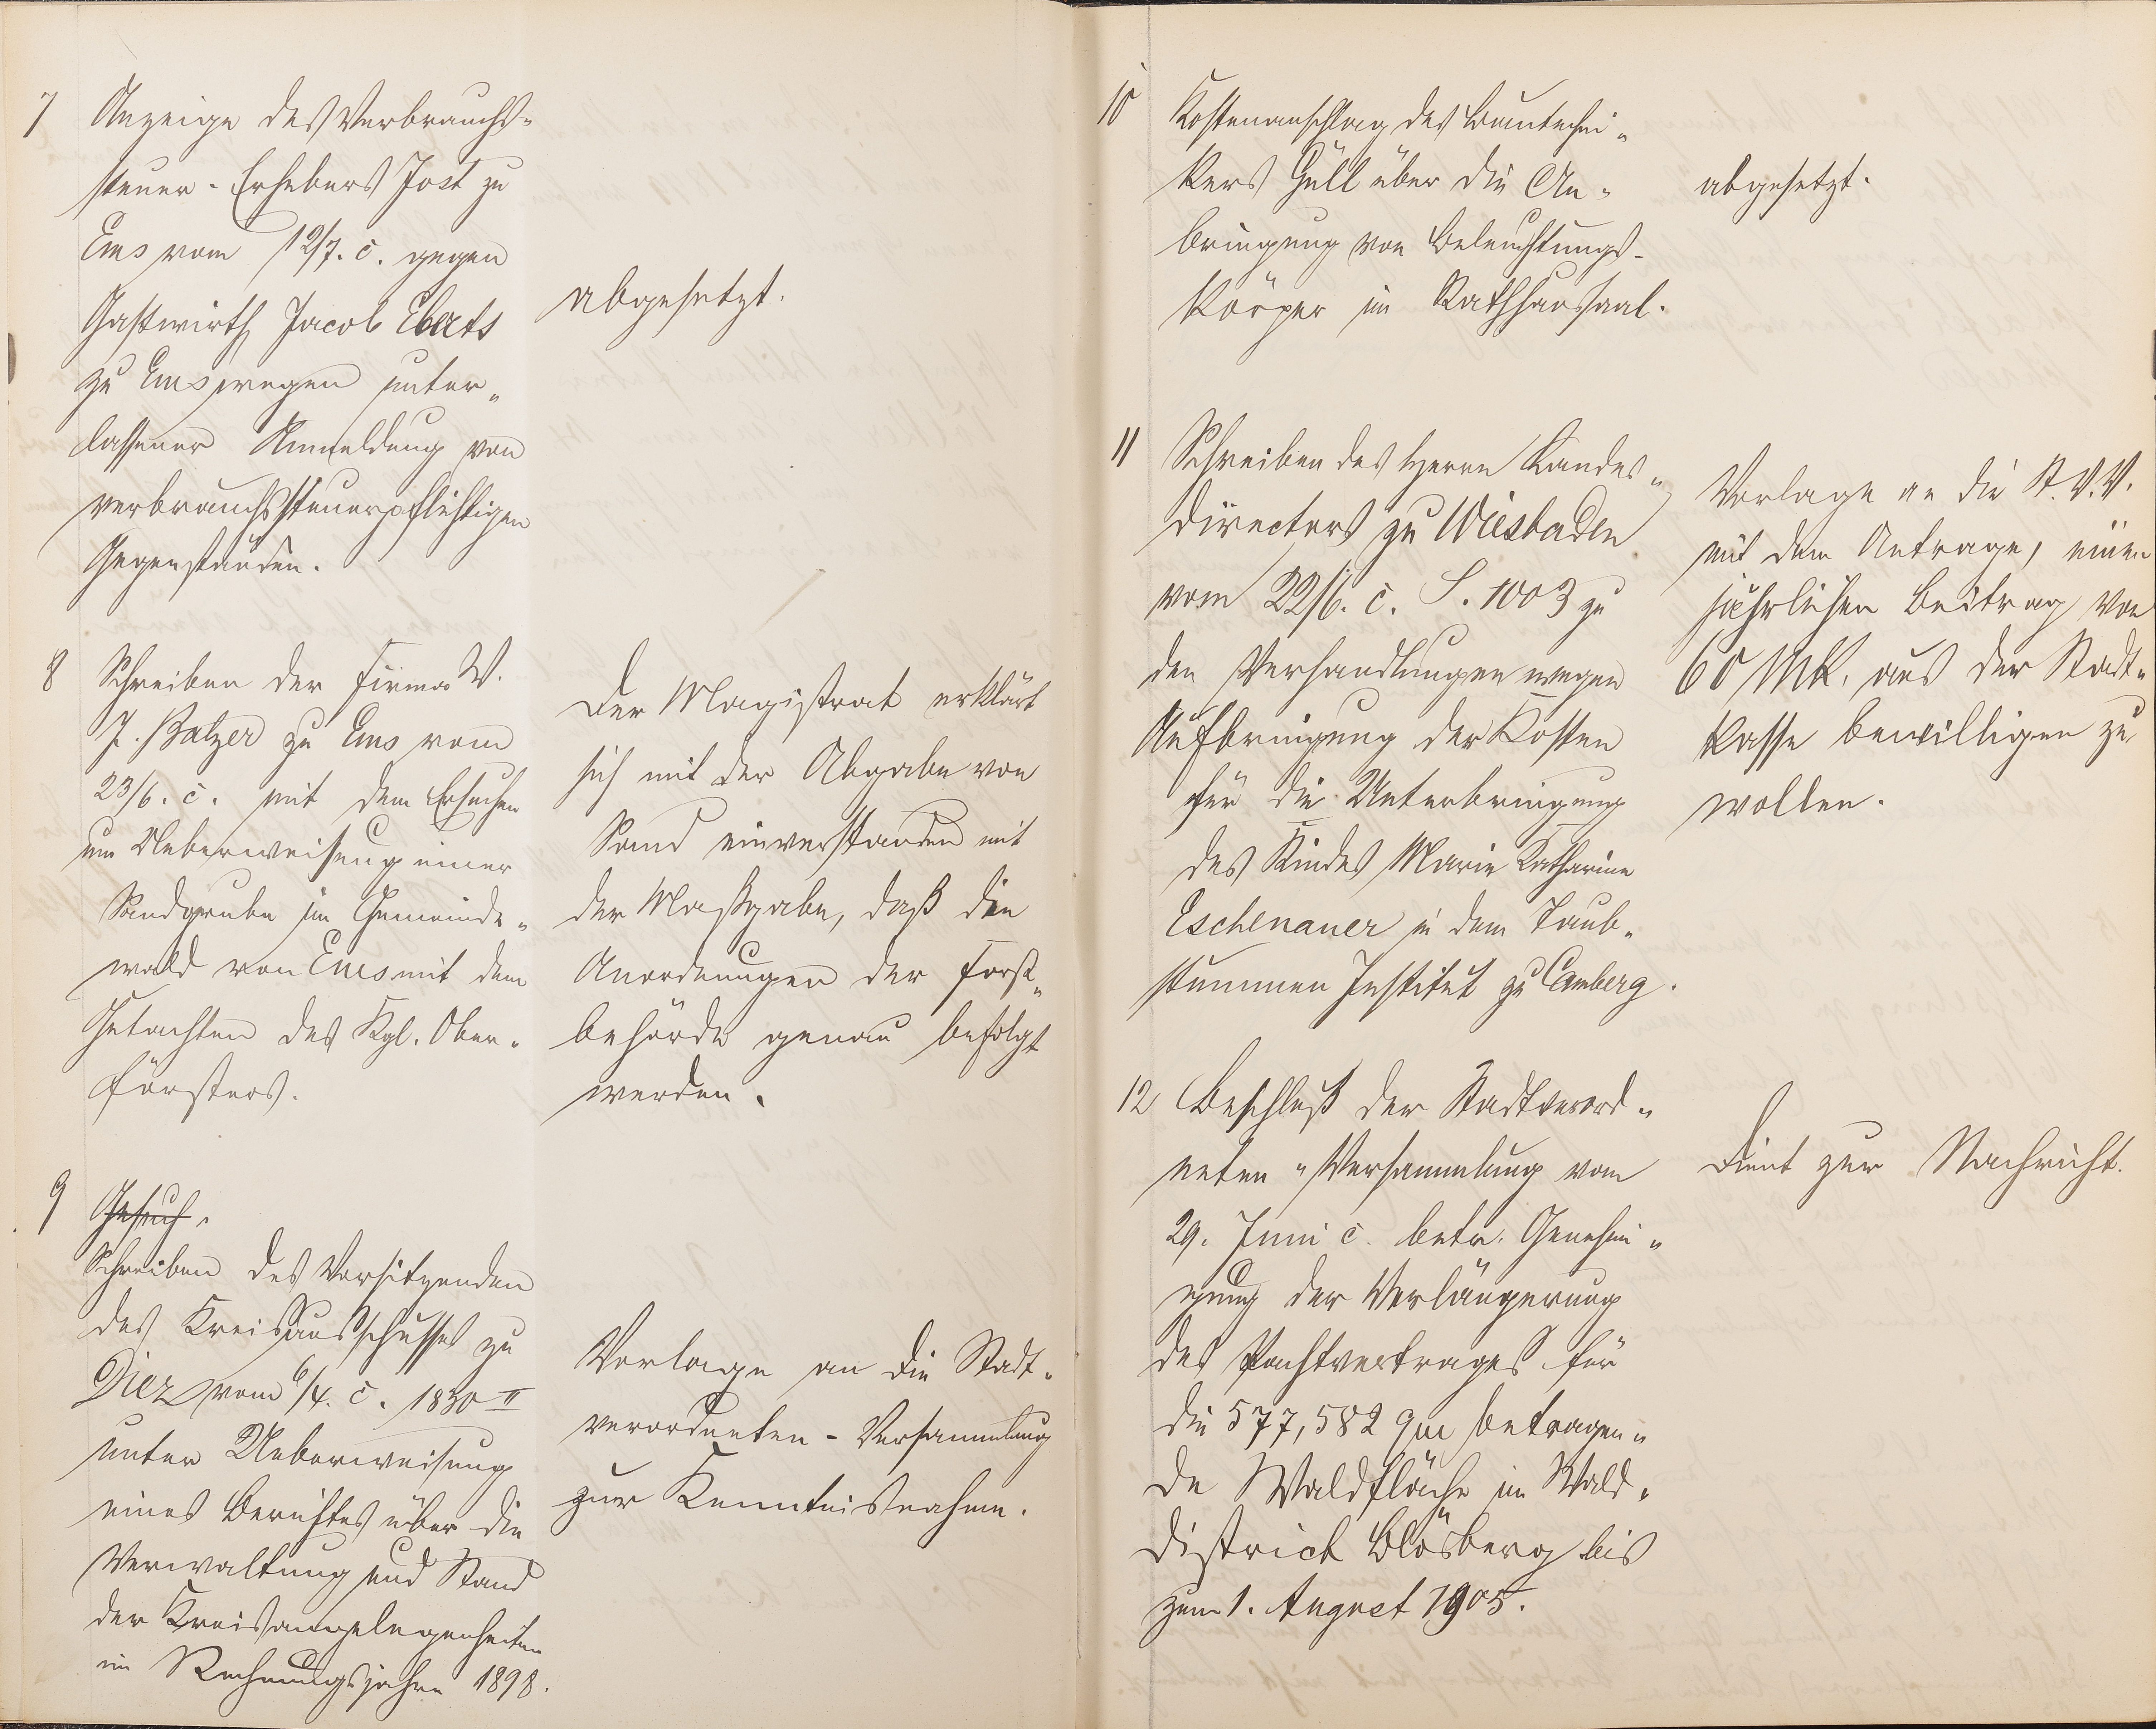 7 Anzeige des Verbrauchs-
steuer-Erhebers Jost zu
Ems vom 12/7. c. gegen
Gastwirth Jacob Eberts
zu Ems wegen unter-
lassener Anmeldung von
verbrauchssteuerpflichtigen
Gegenständen.
abgesetzt.
8 Schreiben der Firma W.
J. Balzer zu Ems vom
23/6. c. mit dem Ersuchen
um Ueberweisung einer
Sandgrube im Gemeinde-
wald von Ems mit dem
Gutachten des Kgl. Ober-
försters.
Der Magistrat erklärt
sich mit der Abgabe von
Sand einverstanden mit
der Maßgabe, daß die
Anordnungen der Forst-
behörde genau befolgt
werden.
9 Gesuch.
Schreiben des Vorsitzenden
des Kreisausschusses zu
Diez vom 6/4. c. 1830 II
unter Ueberweisung
eines Berichtes über die
Verwaltung und Stand
der Kreisangelegenheiten
im Rechnungsjahre 1898.
Vorlage an die Stadt-
verordneten-Versammlung
zur Kenntnißnahme.
10 Kostenanschlag des Bautechni-
kers Güll über die An-
bringung von Beleuchtungs-
körper im Rathhaussaal.
abgesetzt.
11 Schreiben des Herrn Landes-
directors zu Wiesbaden
vom 22/6. c. S. 1003 zu
den Verhandlungen wegen
Aufbringung der Kosten
für die Unterbringung
des Kindes Marie Katharine
Eschenauer in dem Taub-
stummen Institut zu Camberg.
Vorlage an die St. V. V.
mit dem Antrage, einen
jährlichen Beitrag von
60 Mk. aus der Stadt-
kasse bewilligen zu
wollen.
12 Beschluß der Stadtverord-
neten-Versammlung vom
29. Juni c. betr. Genehmi-
gung der Verlängerung
des Pachtvertrages für
die 577,582 qm betragen-
de Waldfläche im Wald-
district Blösberg bis
zum 1. August 1905.
Dient zur Nachricht.